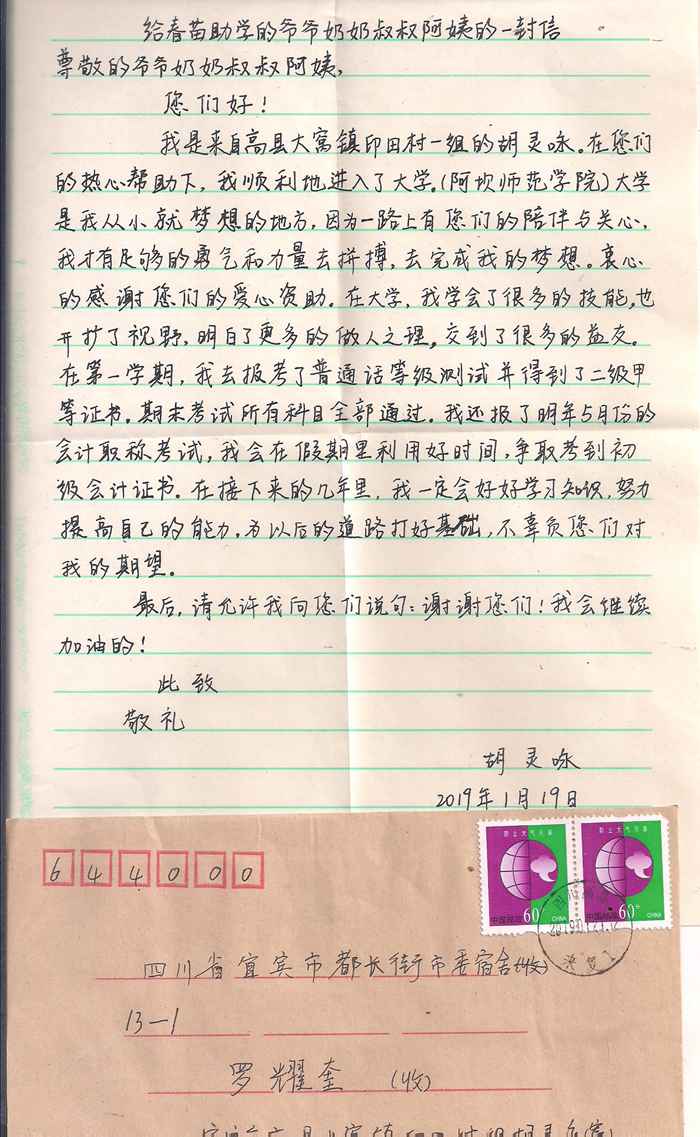 给春苗助学的爷爷奶奶叔叔阿姨的一封信
尊敬的爷爷奶奶叔叔阿姨,
您们好!
我是来自高县大窝镇印田村一组的胡灵咏。在您们
的热心帮助下,我顺利地进入了大学。(阿坝师范学院)大学
是我从小就梦想的地方,因为一路上有您们的陪伴与关心,
我才有足够的勇气和力量去拼搏,去完成我的梦想。衷心
的感谢您们的爱心资助。在大学,我学会了很多的技能,也
开拧了视野,明白了更多的做人之理。交到了很多的益友。
在第一学期,我去报考了普通话等级测试并得到了二级甲
等证书。期末考试所有科目全部通过。我还报了明年5月份的
会计职称考试,我会在假期里利用好时间,争取考到初
级会计证书。在接下来的几年里,我一定会好好学习知识,努力
提高自己的能力。为以后的道路打好基础,不辜负您们对
我的期望。
最后,请允许我向您们说句:谢谢您们!我会继续
加油的!
此致
敬礼
胡灵咏
2019年1月19日
644000
防止大气污染 防止大气污染
中国邮政 60分 CHINA 中国邮政 60分 CHINA
四川省宜宾市都长街市委宿舍(收)
13-1
罗耀奎 (收)